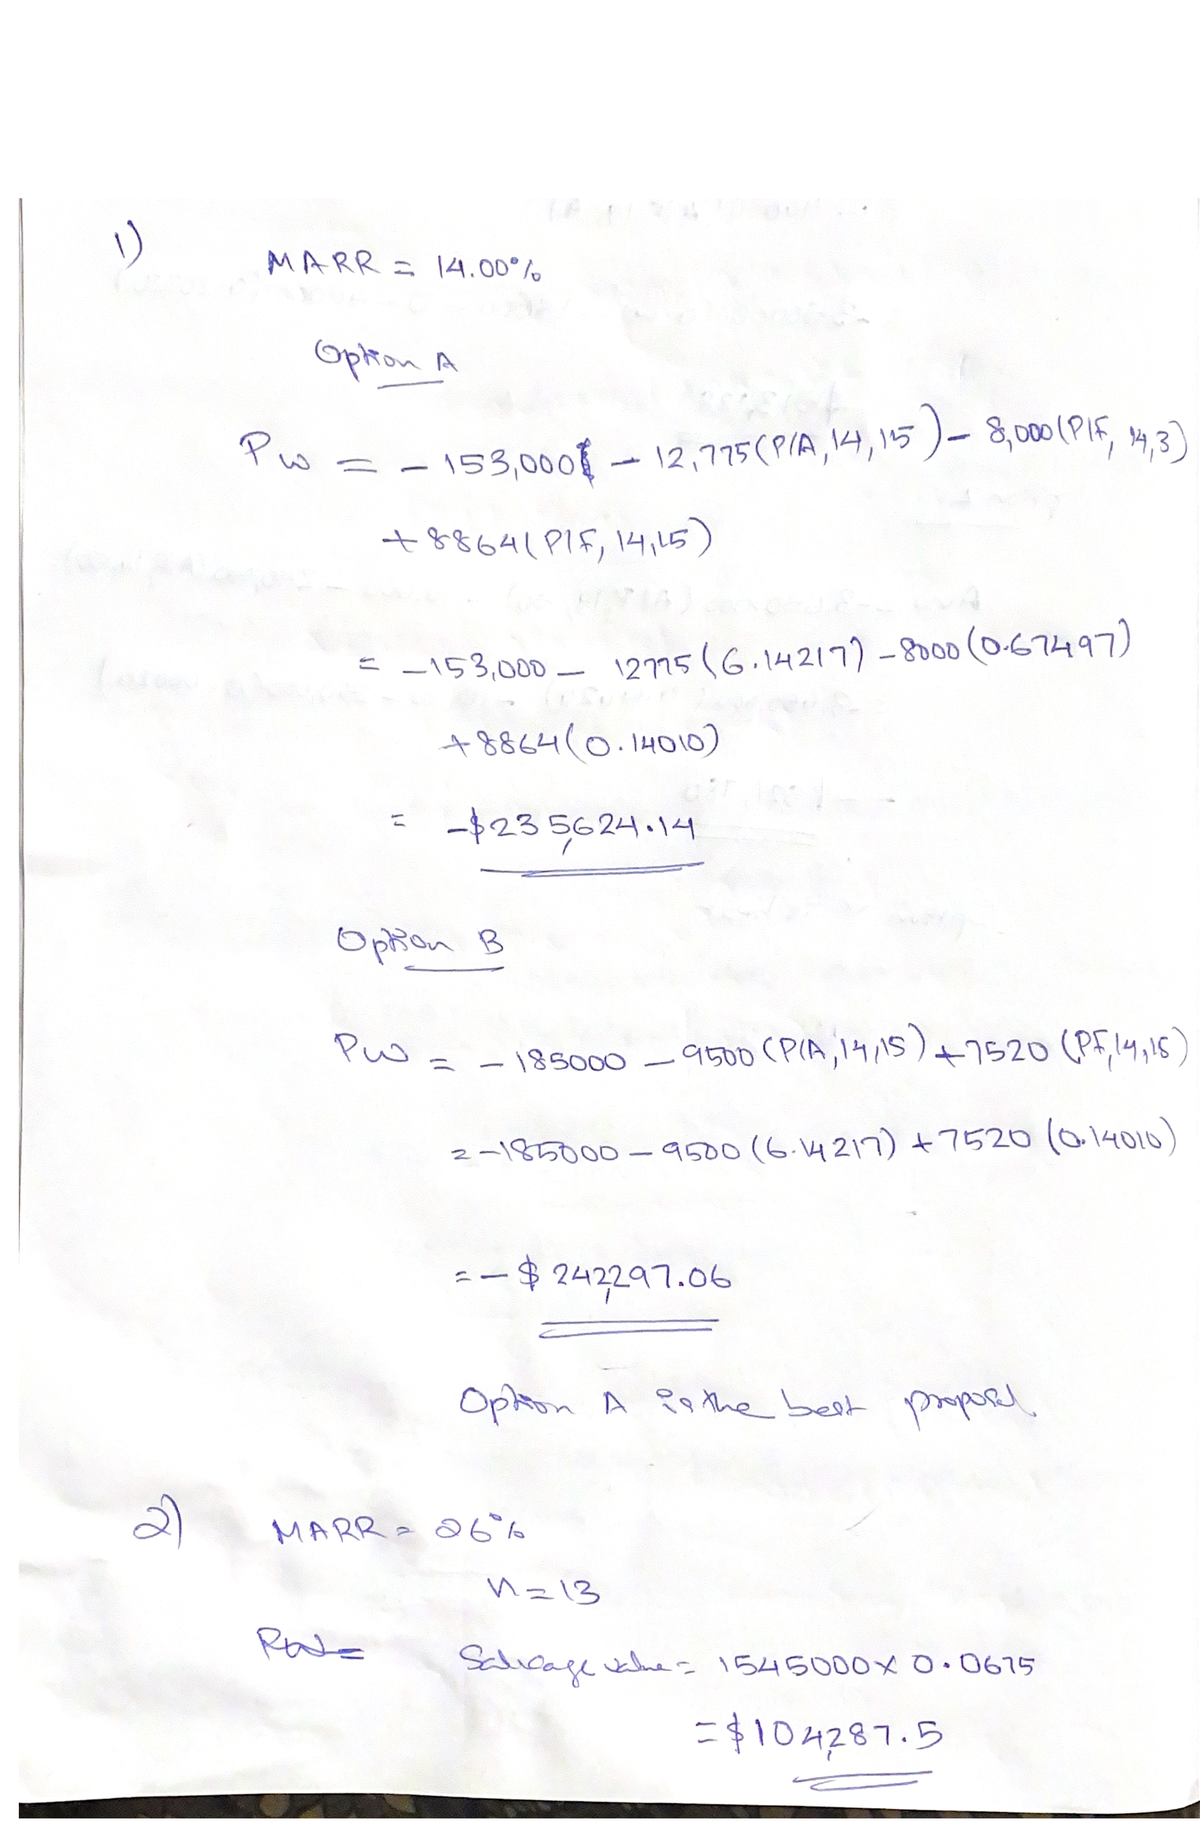 1)
MARR = 14.00%
Option A
Pw = - 153,000 - 12,775(P/A,14,15) - 8,000(P/F, 14,3)
+8864(P/F, 14,15)
= -153,000 - 12775(6.14217) - 8000(0.67497)
+8864(0.14010)
= -$235,624.14
Option B
Pw = - 185000 - 9500 (P/A,14,15) + 7520 (PF,14,15)
= -185000 - 9500 (6.14217) + 7520 (0.14010)
= - $ 242,297.06
Option A is the best proposal.
2) MARR = 26%
n = 13
Salvage value = 1545000 x 0.0675
= $104,287.5